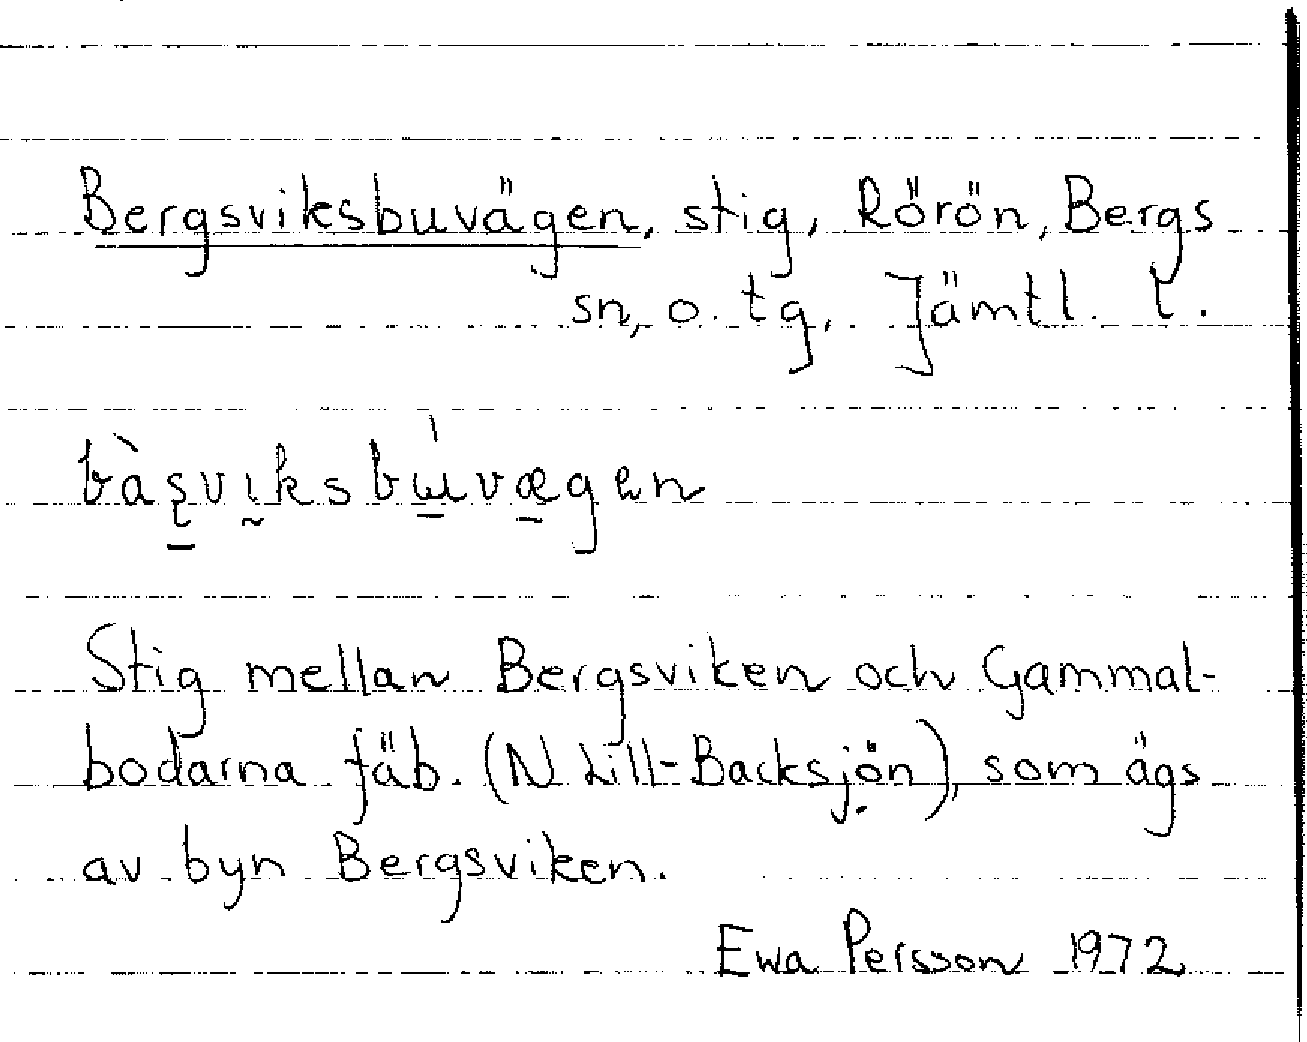 Bergsviksbuvägen, stig, Rörön, Bergs
sn, o. tg, Jämtl. l.
bàşvıksbɯ́vægen
Stig mellan Bergsviken och Gammal-
bodarna fäb. (N Lill-Backsjön), som ägs
av byn Bergsviken.
Ewa Persson 1972